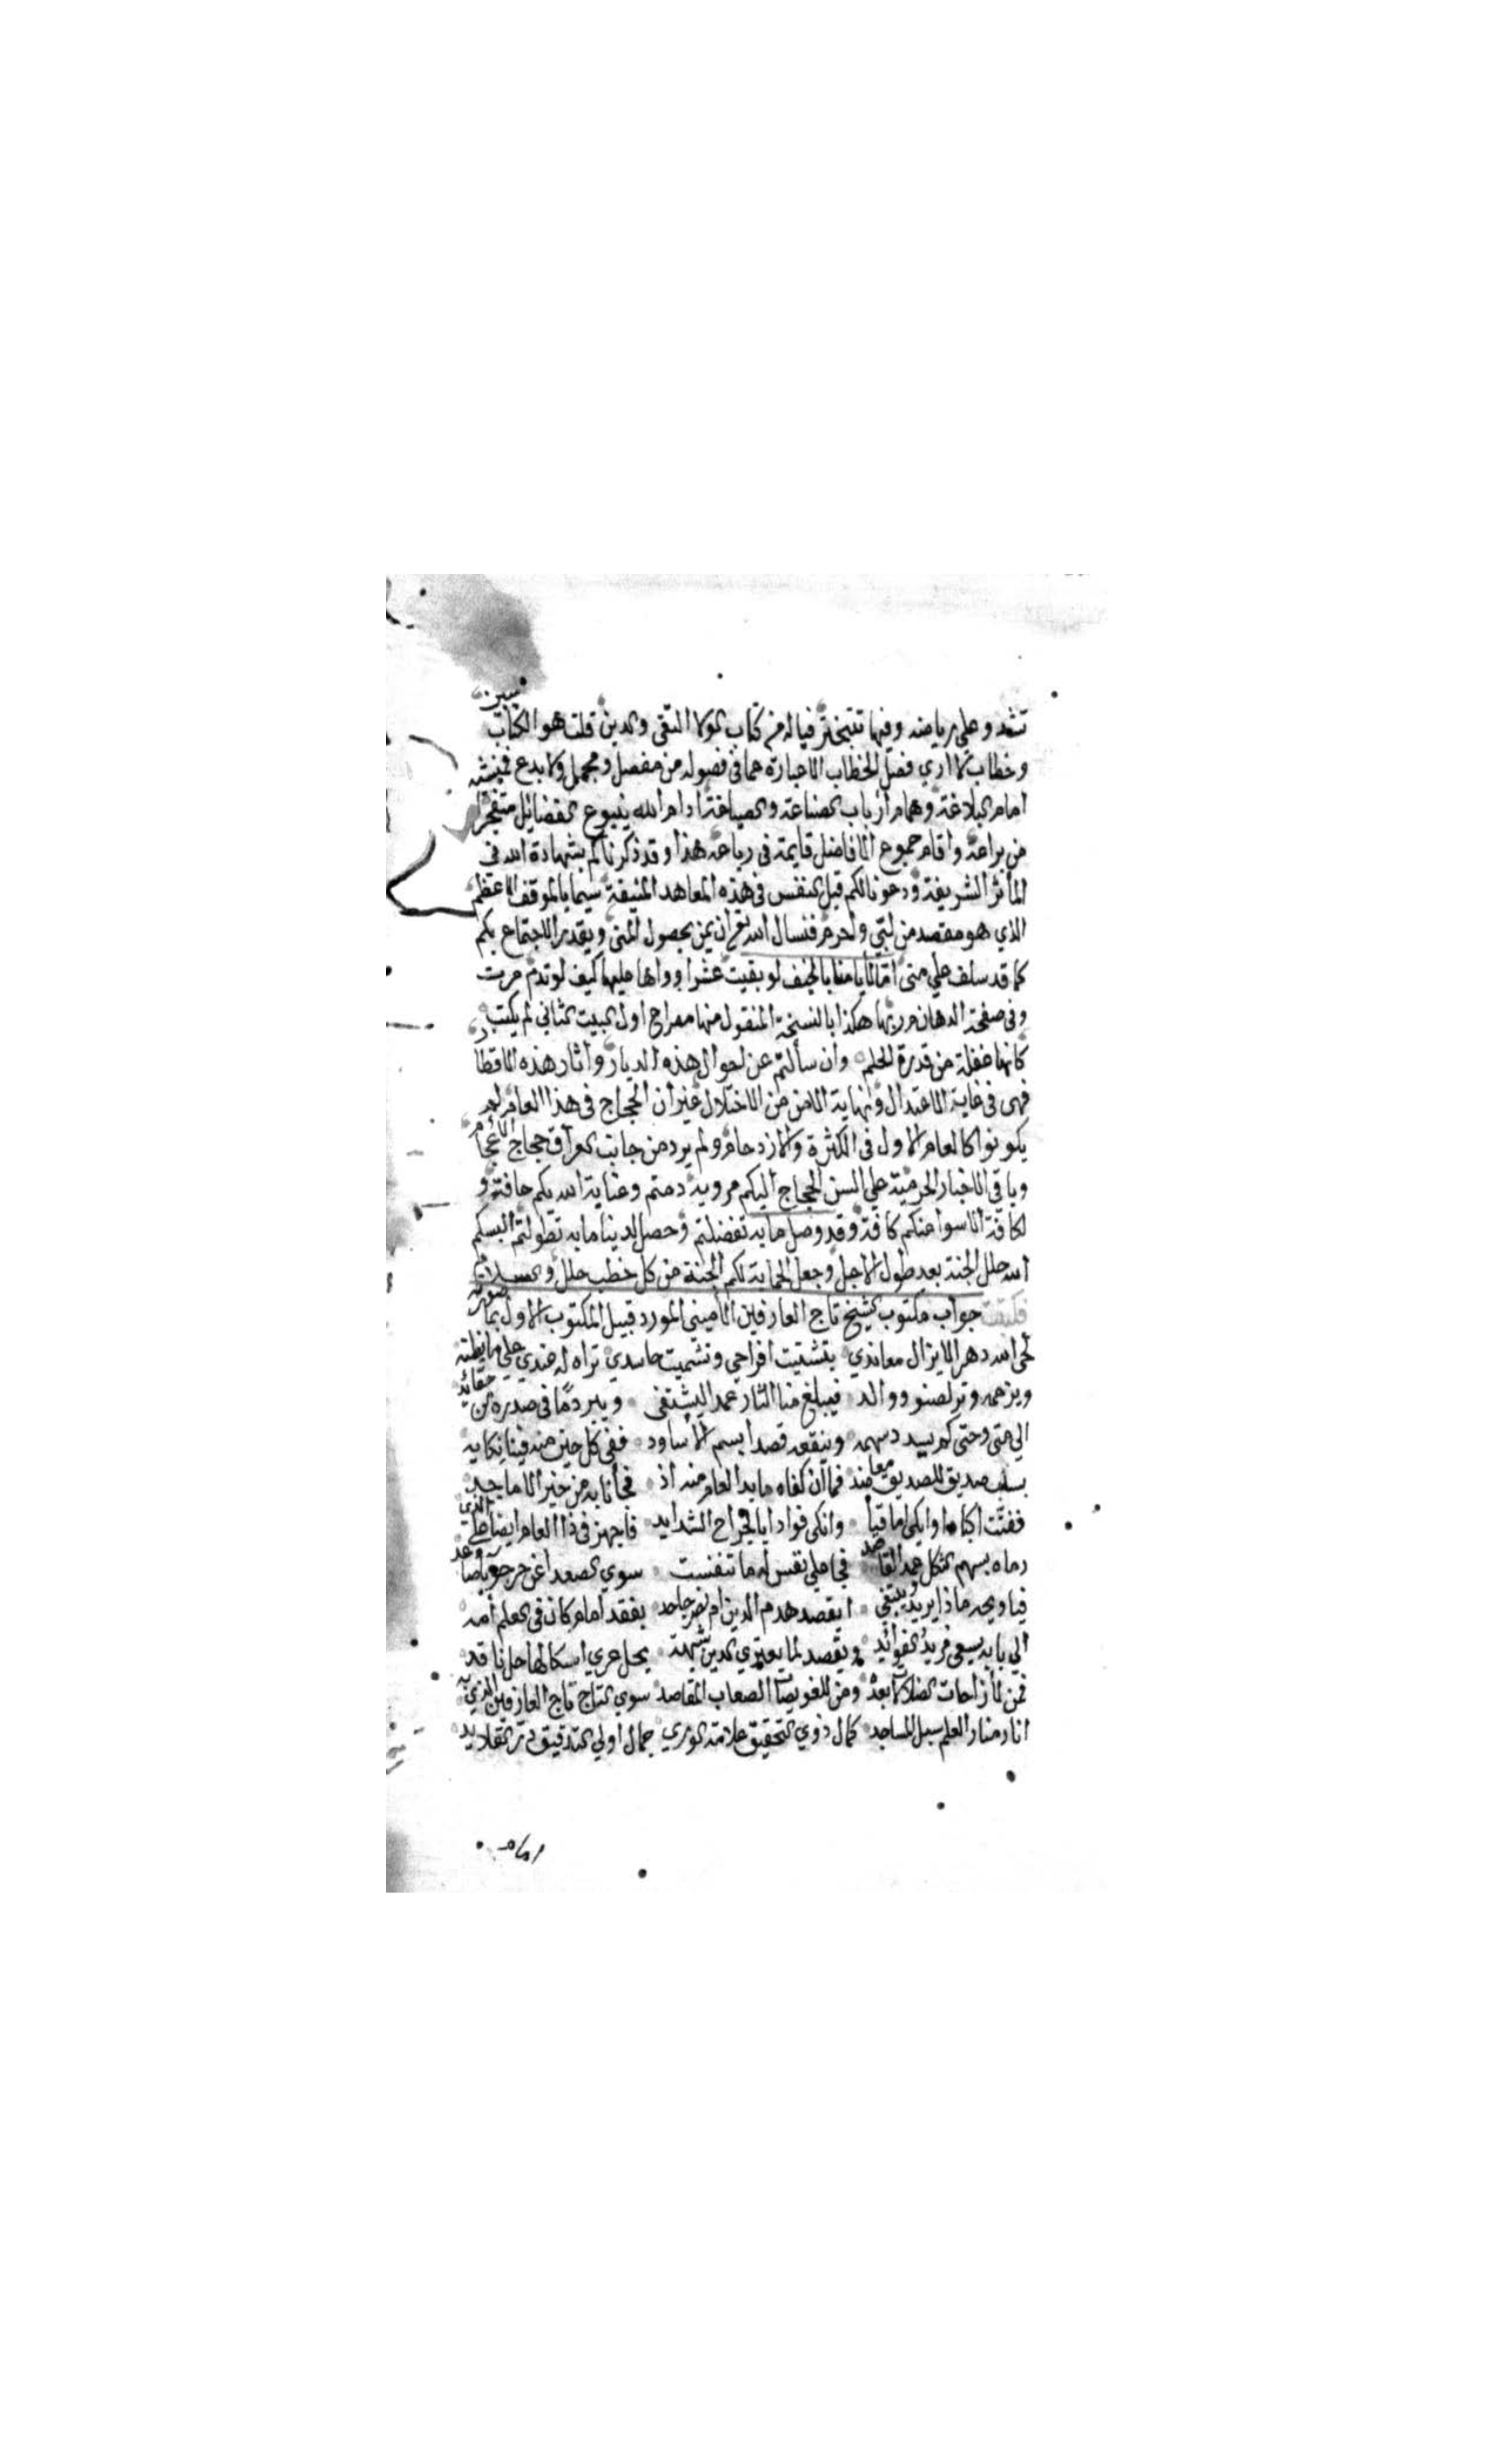 تشدو علي رياضه وفيها تتبختر فياله من كتاب لولا التقى والدين قلت هو الكتاب المبين
وخطاب لا اري فصل الخطاب الا عبارة عما في فصوله من مفصل ومجمل ولا بدع فمنشيه
امام البلاغة وهمام ارباب الصناعة والصياغة ادام الله ينبوع الفضائل متفجرا
من يراعه واقام جموع الافاضل قايمة في رباعه هذا وقد ذكرناكم بشهادة الله في
المآثر الشريفة ودعونا لكم قبل النفس في هذه المعاهد المنيفة سيما بالموقف الاعظم
الذي هو مقصد من لبي واحرم فنسال الله تع ان يمن بحصول المنى ويقدر الاجتماع بكم
كما قد سلف علي منى امّا لنا بالخيف لو بقيت عشرا وواها عليها كيف لو تدم مرت
وفي صفحة الدهان هكذا بالنسخة المنقول منها مصراع اول البيت الثاني لم يكتب
كانها غفلة من قدرة الحلم وان سألتم عن احوال هذه الديار واثار هذه الاقطار
فهى في غاية الاعتدال ونهاية الامن من الاختلال غير ان الحجاج في هذا العام لم
يكونوا كالعام الاول في الكثرة والازدحام ولم يرد من جانب العراق حجاج الاعجام
وباقي الاخبار الحرمية علي السن الحجاج اليكم مروية دمتم وعناية الله بكم حافة و
لكافة الاسوا عنكم كافة وقد وصل ما به تفضلتم وحصل لدينا ما به تطولتم البسكم
الله حلل الجنة بعد طول الاجل وجعل الحماية لكم الجنة من كل خطب جلل والسلام
فكتبت جواب مكتوب الشيخ تاج العارفين الاميني المورد قبيل المكتوب الاول بما صورته
لحى الله دهرا لا يزال معاندي بتشتيت افراحي وتشميت حاسدي تراه له عندي علي ما يظنه
ويزعمه وتر لصنو ووالد فيبلغ منا الثار عمدا ليشتفى ويبرد ما في صدره من حقائد
الي متى وحتى كم يسدد سهمه وينقعه قصدا بسم الاساود ففي كل حين منه فينا نكاية
بسلب صديق للصديق معاضد فما ان كفاه ما بدا العام منه اذ فجانا به من خير الاماجد
ففتت اكبادا وابكى اماقيا وانكى فوادا بالجراح الشدايد فاجهز في ذا العام ايضا علي الذي
رماه بسهم الثكل عمد القاصد في اعلي نفس له ما تنفست سوي الصعدا عن حر جو تصاعد
فيا ويحه ماذا يريد ويبتغي ايقصد هدم الدين ام نصر جاحد بفقد امام كان في العلم أمه
الي بابه يسعى فريد الفوائد ويقصد لما يعتري الدين شبهة يحل عري اسكالها حل ناقد
فمن لازاحات الضلالات بعده ومن للعويصات الصعاب المقاصد سوي التاج تاج العارفين الذي به
انار منار العلم سبل المساجد كمال ذوي التحقيق علامة الوري جمال اولي التدقيق در القلايد
امام